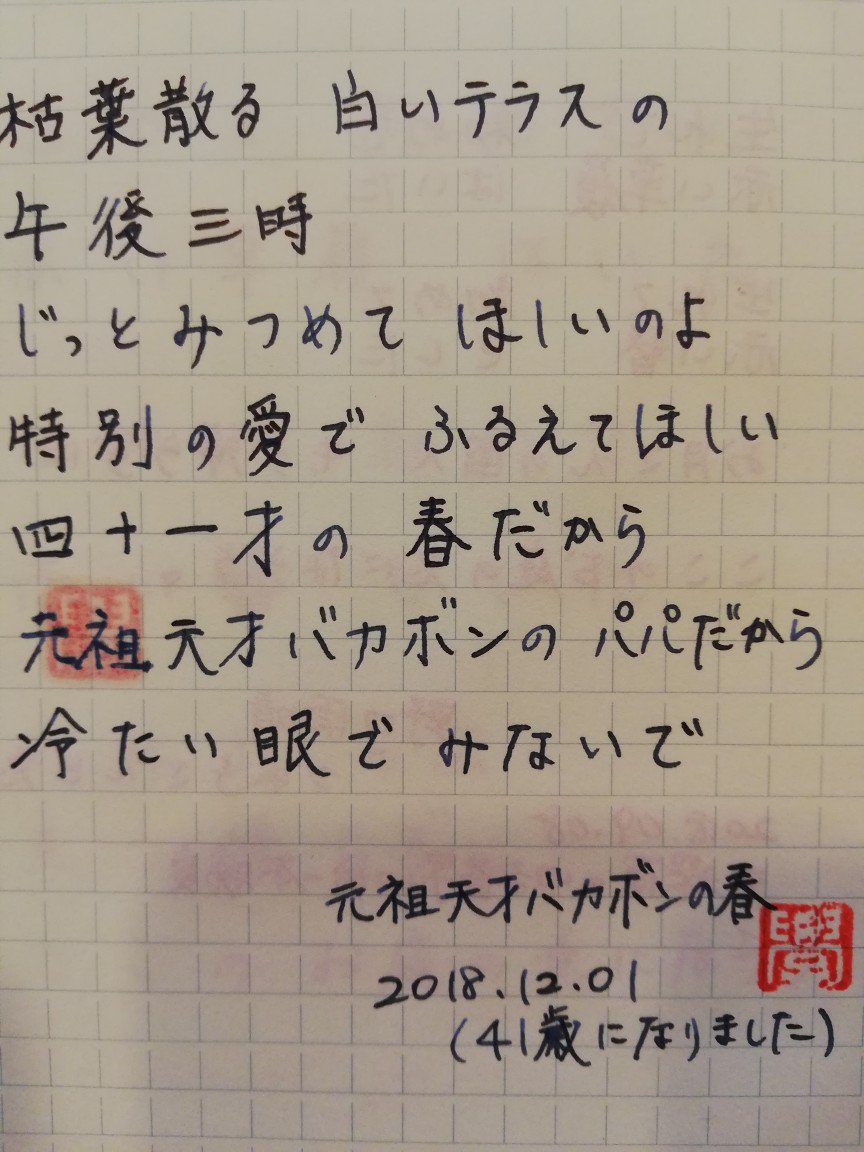 枯葉散る 白いテラスの
午後三時
じっとみつめて ほしいのよ
特別の愛で ふるえてほしい
四十一才の 春だから
元祖天才バカボンの パパだから
冷たい眼で みないで
元祖天才バカボンの春
2018.12.01
(41歳になりました)